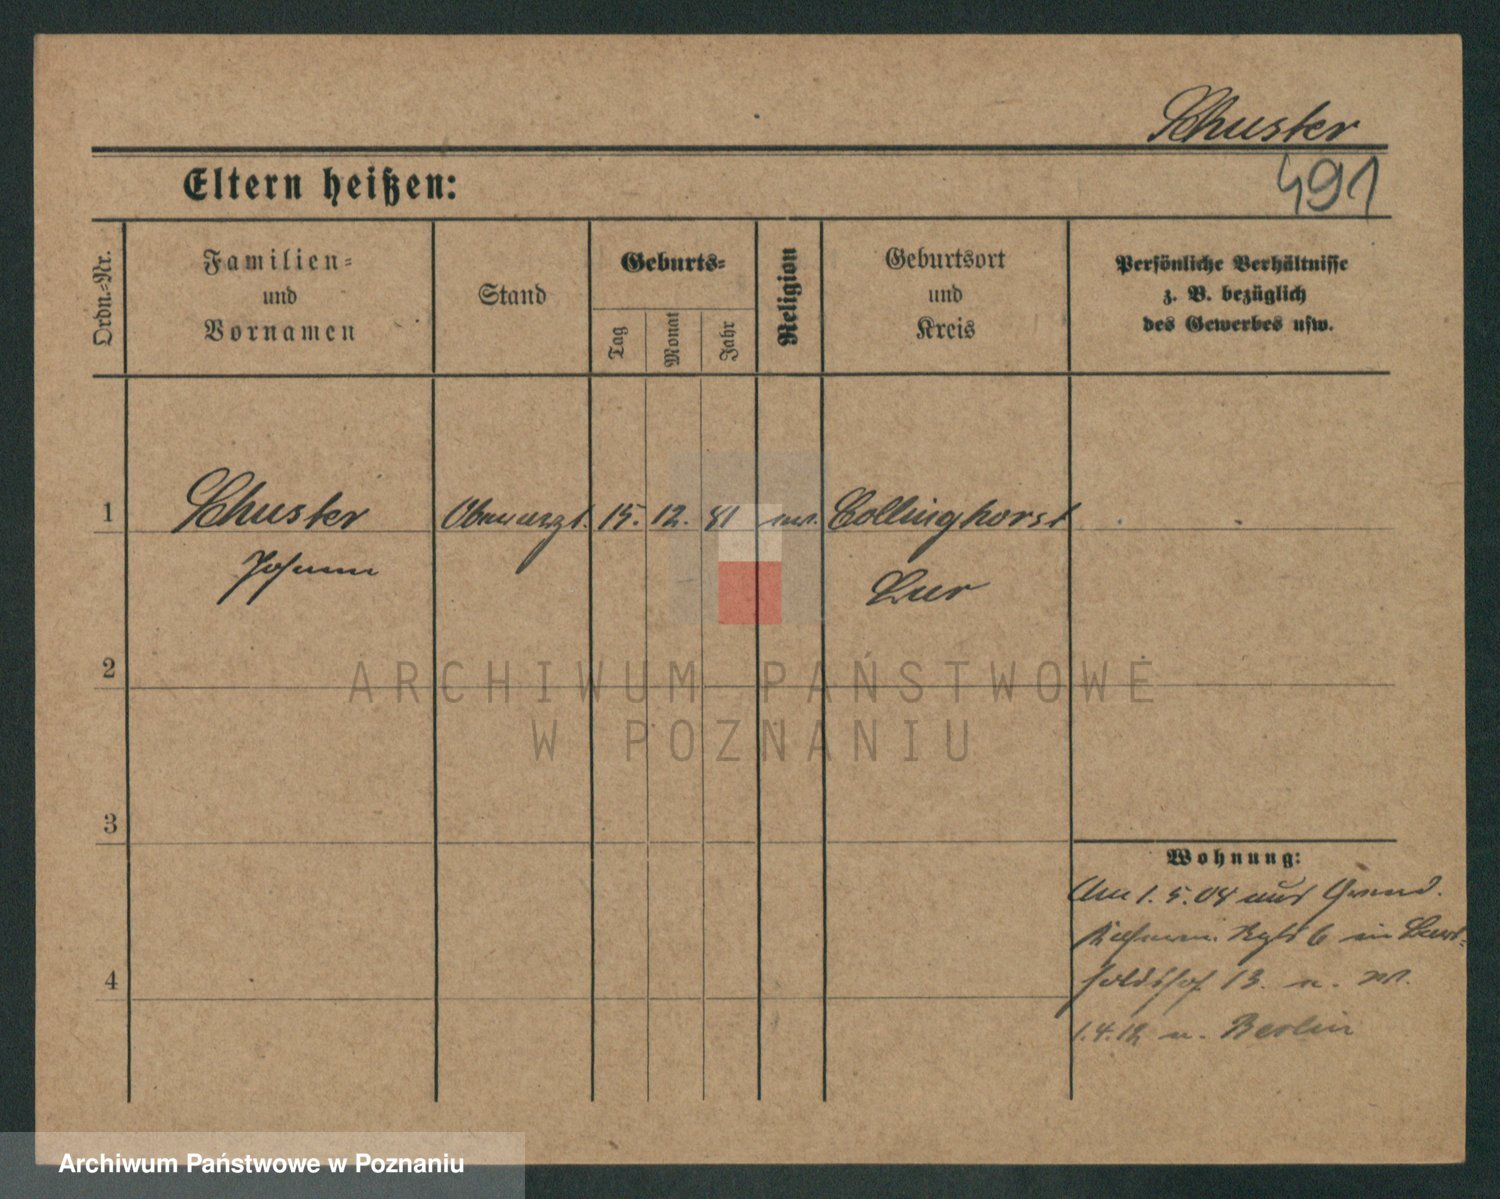 Schuster
491
Eltern heißen:
Ordn.-Nr.
Familien-
und
Vornamen
Stand
Geburts-
Tag
Monat
Jahr
Religion
Geburtsort
und
Kreis
Persönliche Verhältnisse
z. B. bezüglich
des Gewerbes usw.
1
Schuster
15. 12. 81
Collinghorst
Johann
Leer
2
ARCHIWUM PAŃSTWOWE
W POZNANIU
3
Wohnung:
Am 1. 5. 04 aus
Regts 6 in
4
13. n.
1.4.12 n. Berlin
Archiwum Państwowe w Poznaniu